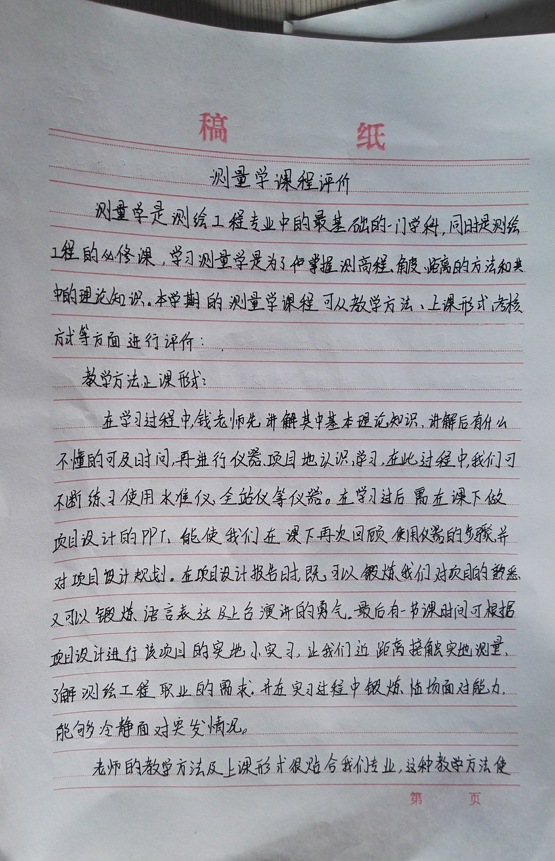 稿 纸
测量学课程评价
测量学是测绘工程专业中的最基础的一门学科,同时是测绘
工程的必修课,学习测量学是为了掌握测高程、角度、距离的方法和其
中的理论知识。本学期的测量学课程可从教学方法、上课形式,考核
方式等方面进行评价:
教学方法上课形式:
在学习过程中,钱老师先讲解其中基本理论知识,讲解后有什么
不懂的可及时问,再进行仪器、项目地认识,学习,在此过程中,我们可
不断练习使用水准仪,全站仪等仪器。在学习过后需在课下做
项目设计的PPT,能使我们在课下再次回顾使用仪器的步骤,并
对项目设计规划。在项目设计报告时,既可以锻炼我们对项目的熟悉
又可以锻炼语言表达及上台演讲的勇气。最后有一节课时间可根据
项目设计进行该项目的实地小实习,让我们近距离接触实地测量,
了解测绘工程职业的需求,并在实习过程中锻炼临场面对能力,
能够冷静面对突发情况。
老师的教学方法及上课形式很贴合我们专业,这种教学方法使
第 页